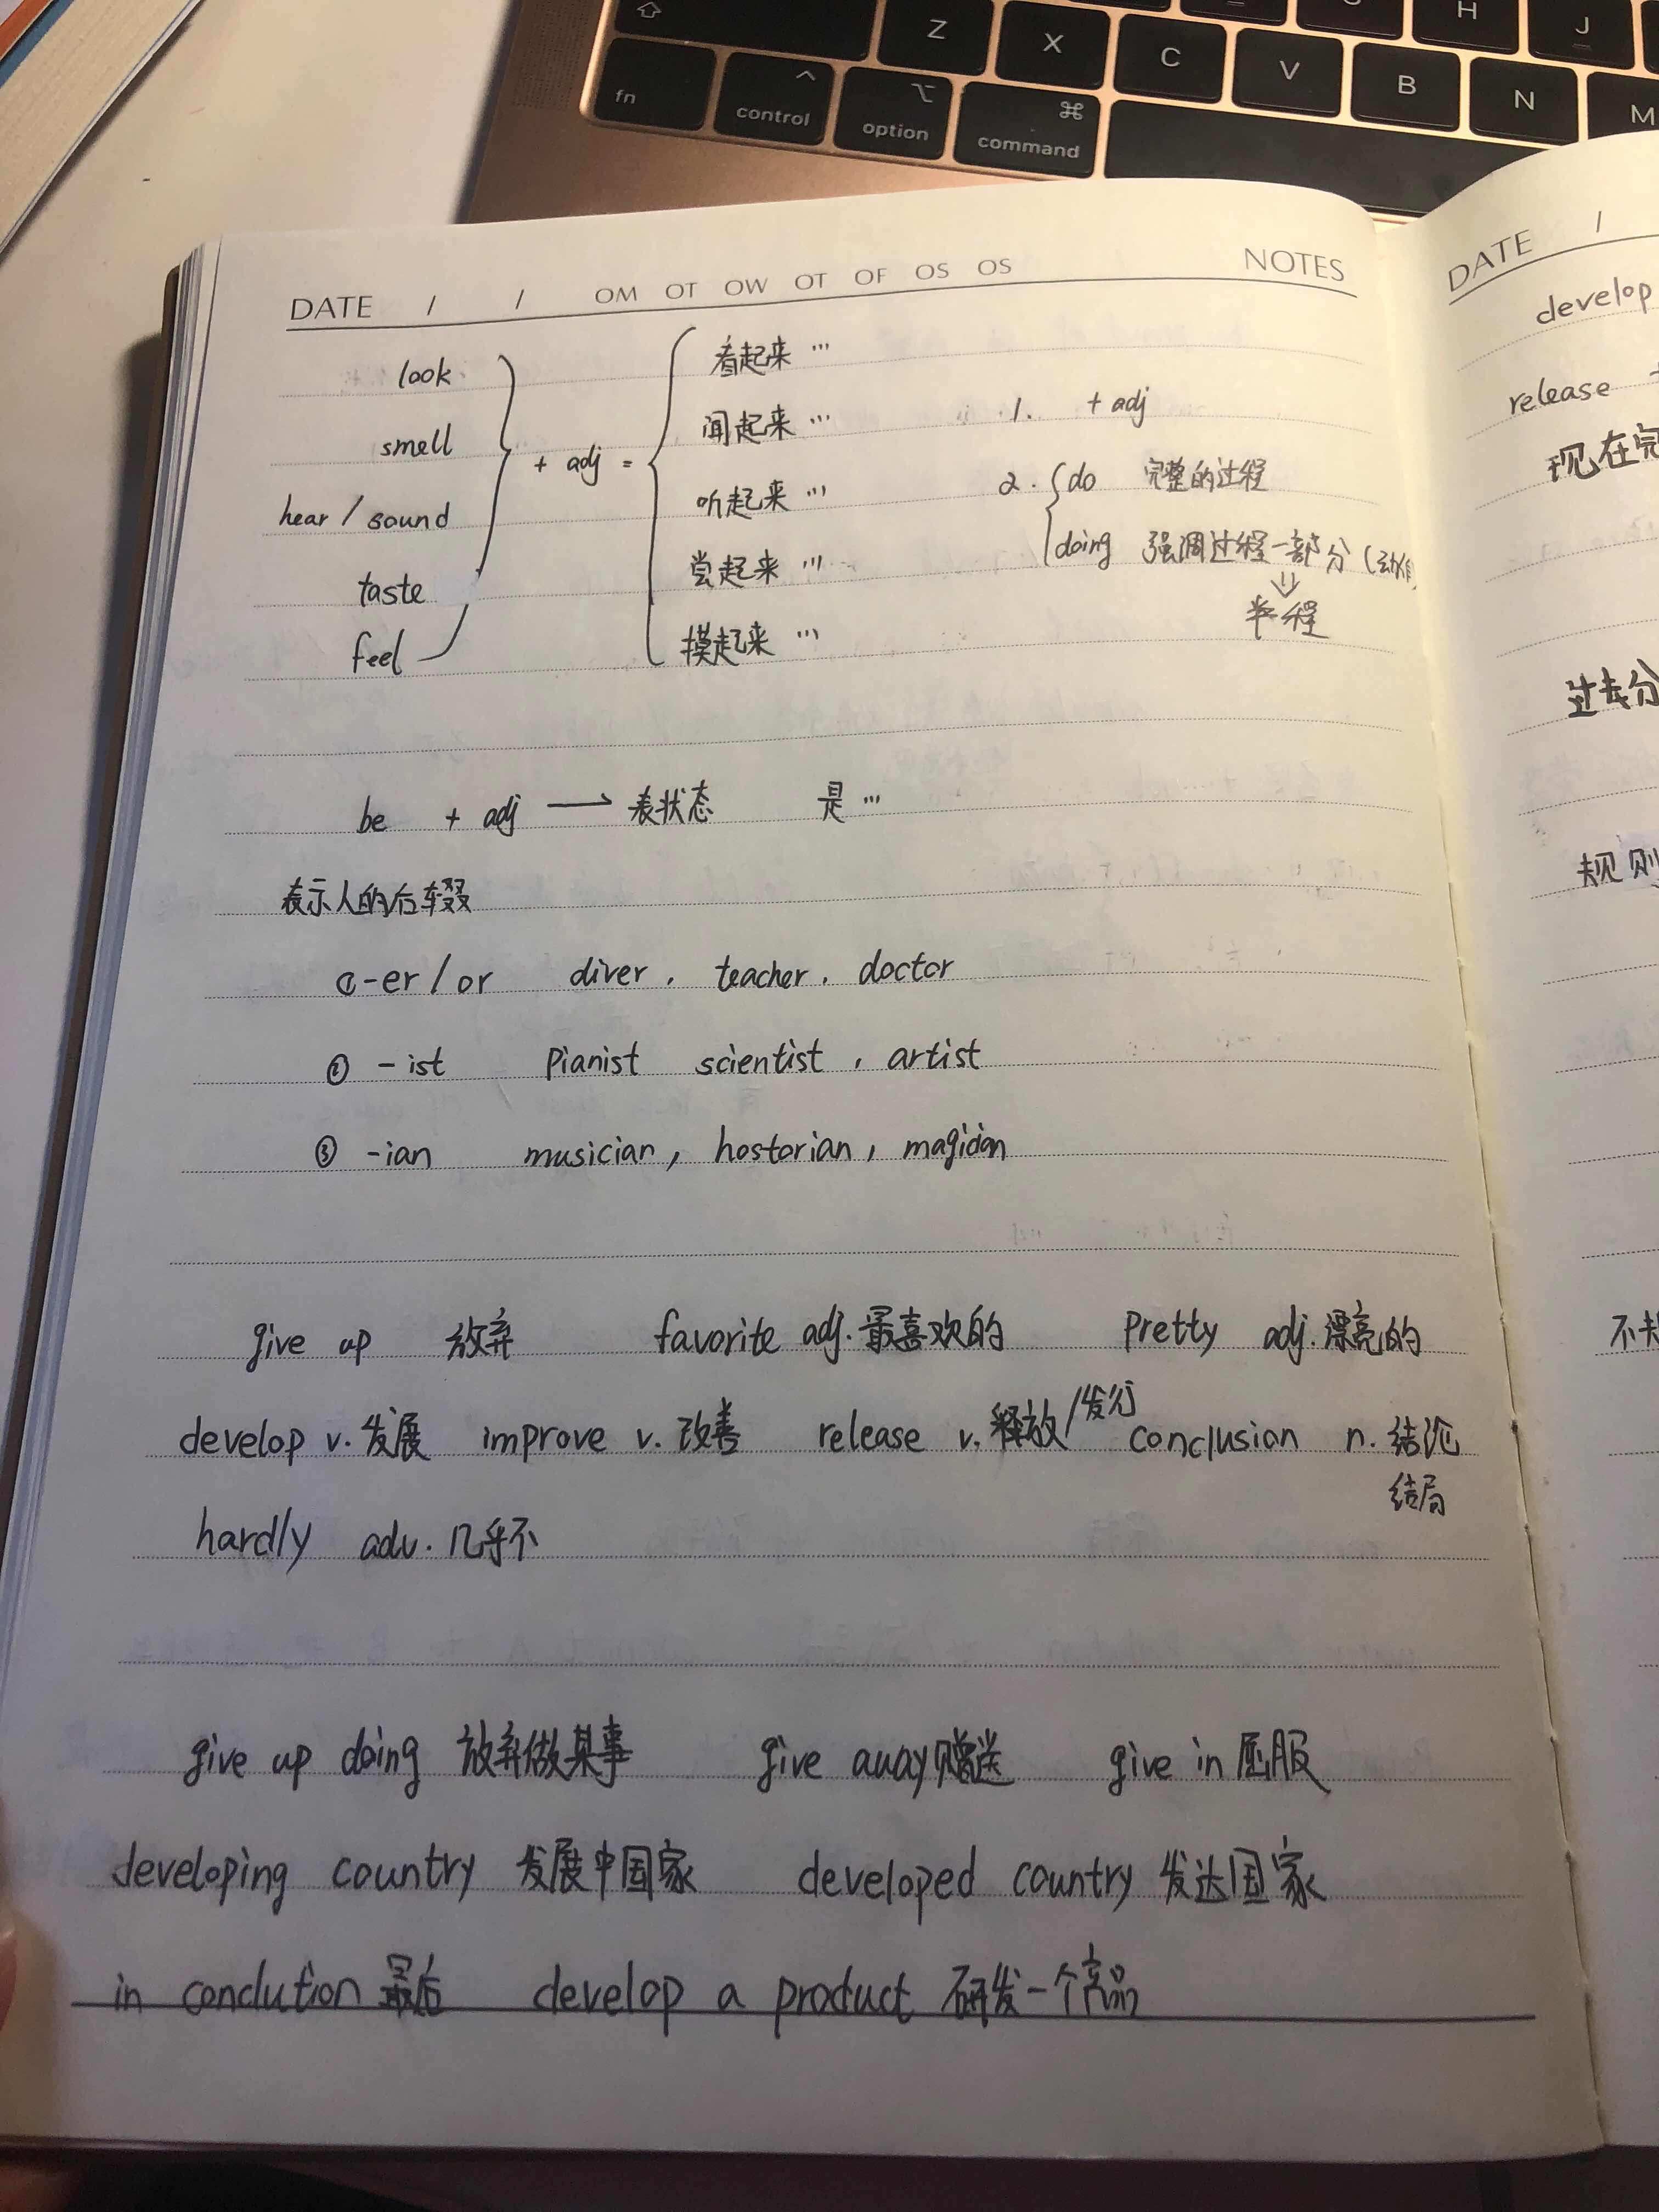 Z X C V B N M H J
fn control option command
DATE / / OM OT OW OT OF OS OS NOTES
look 看起来 …
smell 闻起来 … 1. + adj
+ adj =
hear / sound 听起来 … 2. do 完整的过程
taste 尝起来 … doing 强调过程一部分 (动作)
⇓
半程
feel 摸起来 …
be + adj → 表状态 是 …
表示人的后缀
① -er / or diver, teacher, doctor
② - ist Pianist scientist, artist
③ -ian musician, hostorian, magician
give up 放弃 favorite adj. 最喜欢的 Pretty adj. 漂亮的
develop v. 发展 improve v. 改善 release v. 释放/发行 conclusion n. 结论
结局
hardly adv. 几乎不
give up doing 放弃做某事 give away 赠送 give in 屈服
developing country 发展中国家 developed country 发达国家
in conclution 最后 develop a product 研发一个产品
DATE /
develop
release +
现在完
过去分
规则
不规